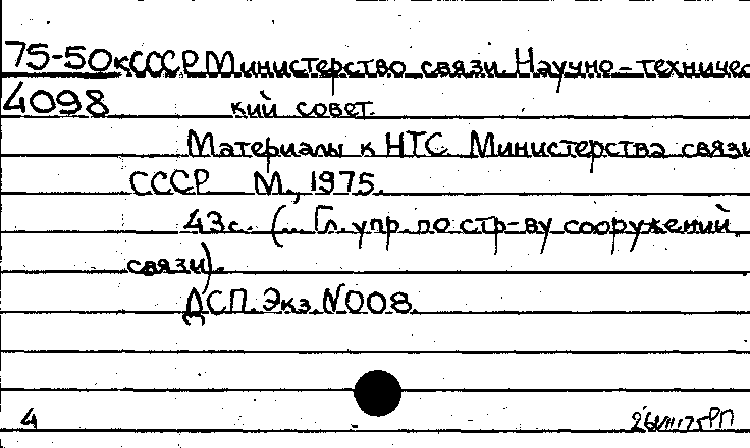 75-50к СССР Министерство связи. Научно-техничес
4098 кий совет.
Материалы к НТС Министерства связи
СССР М., 1975.
43с. (... Гл. упр. по стр-ву сооружений
связи).
ДСП. Экз. №008.
4